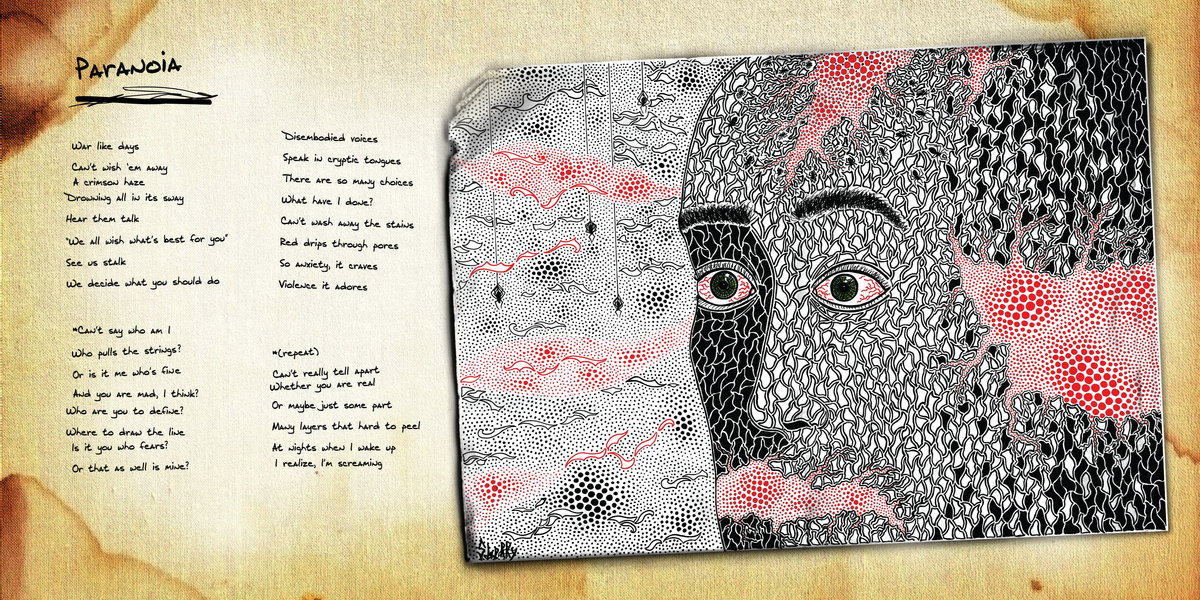 Paranoia
War like days
Can't wish 'em away
A crimson haze
Drowning all in its sway
Hear them talk
"We all wish what's best for you"
See us stalk
We decide what you should do
*Can't say who am I
Who pulls the strings?
Or is it me who's fine
And you are mad, I think?
Who are you to define?
Where to draw the line
Is it you who fears?
Or that as well is mine?
Disembodied voices
Speak in cryptic tongues
There are so many choices
What have I done?
Can't wash away the stains
Red drips through pores
So anxiety, it craves
Violence it adores
*(repeat)
Can't really tell apart
Whether you are real
Or maybe just some part
Many layers that hard to peel
At nights when I wake up
I realize, I'm screaming